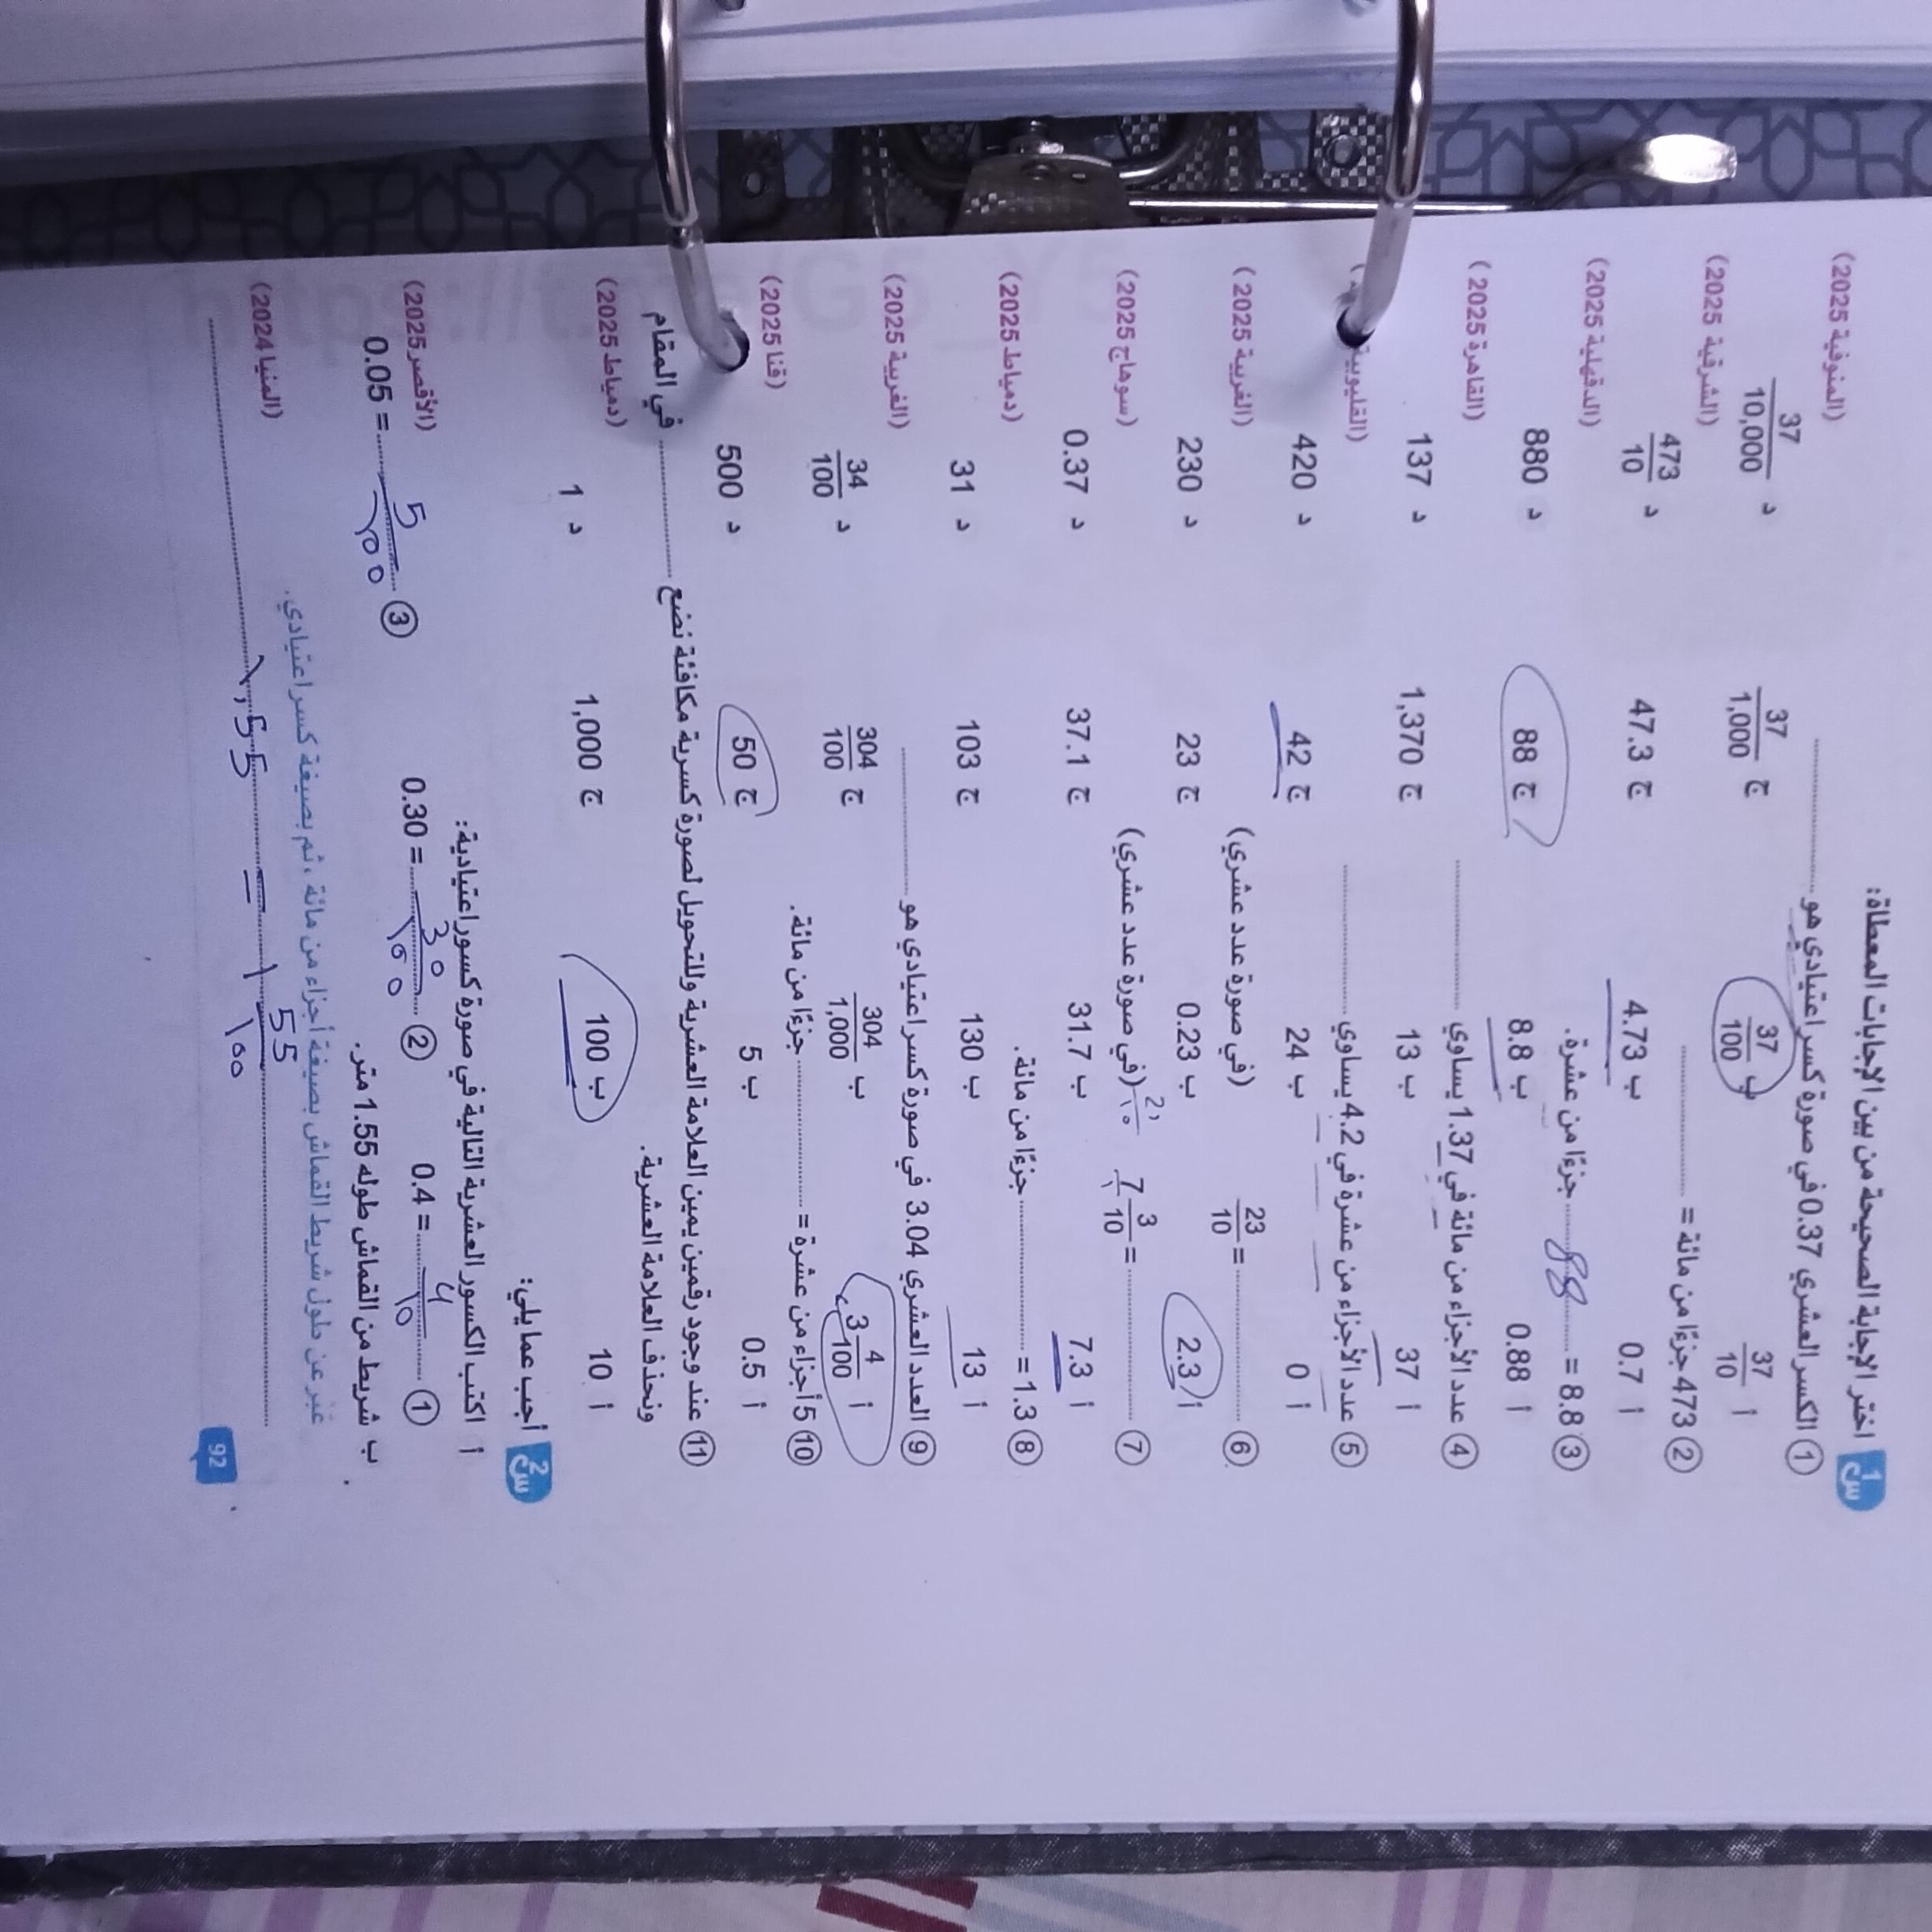 س1 اختر الإجابة الصحيحة من بين الإجابات المعطاة:
① الكسر العشري 0.37 في صورة كسر اعتيادي هو ............ (المنوفية 2025)
أ 37/10 ب 37/100 ج 37/1,000 د 37/10,000
② 473 جزءًا من مائة = ............ (الشرقية 2025)
أ 0.7 ب 4.73 ج 47.3 د 473/10
③ 8.8 = ...88... جزءًا من عشرة. (الدقهلية 2025)
أ 0.88 ب 8.8 ج 88 د 880
④ عدد الأجزاء من مائة في 1.37 يساوي ............ (القاهرة 2025)
أ 37 ب 13 ج 1,370 د 137
⑤ عدد الأجزاء من عشرة في 4.2 يساوي ............ (القليوبية
أ 0 ب 24 ج 42 د 420
⑥ ............ = 23/10 (في صورة عدد عشري) (الغربية 2025)
أ 2.3 ب 0.23 ج 23 د 230
⑦ ............ = 7 3/10 (في صورة عدد عشري) (سوهاج 2025)
أ 7.3 ب 31.7 ج 37.1 د 0.37
⑧ 1.3 = ............ جزءًا من مائة. (دمياط 2025)
أ 13 ب 130 ج 103 د 31
⑨ العدد العشري 3.04 في صورة كسر اعتيادي هو ............ (الغربية 2025)
أ 3 4/100 ب 304/1,000 ج 304/100 د 34/100
⑩ 5 أجزاء من عشرة = ............ جزءًا من مائة. (قنا 2025)
أ 0.5 ب 5 ج 50 د 500
⑪ عند وجود رقمين يمين العلامة العشرية وللتحويل لصورة كسرية مكافئة نضع ............ في المقام
ونحذف العلامة العشرية. (دمياط 2025)
أ 10 ب 100 ج 1,000 د 1
س2 أجب عما يلي:
أ اكتب الكسور العشرية التالية في صورة كسور اعتيادية: (الأقصر 2025)
① 0.4 = 4/10 ② 0.30 = 30/100 ③ 0.05 = 5/100
ب شريط من القماش طوله 1.55 متر.
عبر عن طول شريط القماش بصيغة أجزاء من مائة، ثم بصيغة كسر اعتيادي. (المنيا 2024)
1,55 = 1 55/100
92